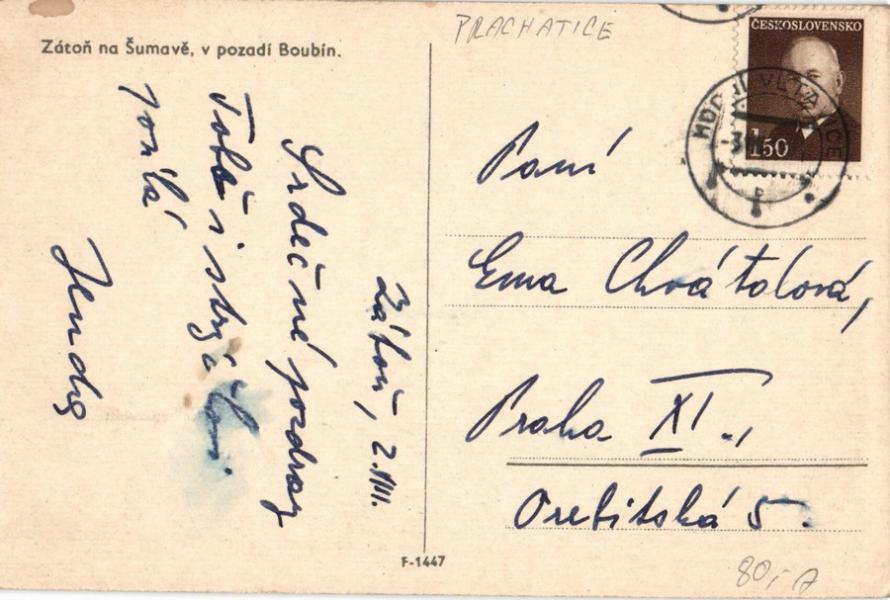 Zátoň na Šumavě, v pozadí Boubín.
PRACHATICE
ČESKOSLOVENSKO
1.50
HORNÍ VLTAVICE
Zátoň, 2.VIII.
Srdečné pozdravy
Tobě i strýčkovi
Jendy
Paní
Ema Chvátalová,
Praha XI.,
Orebitská 5.
F-1447
80,-